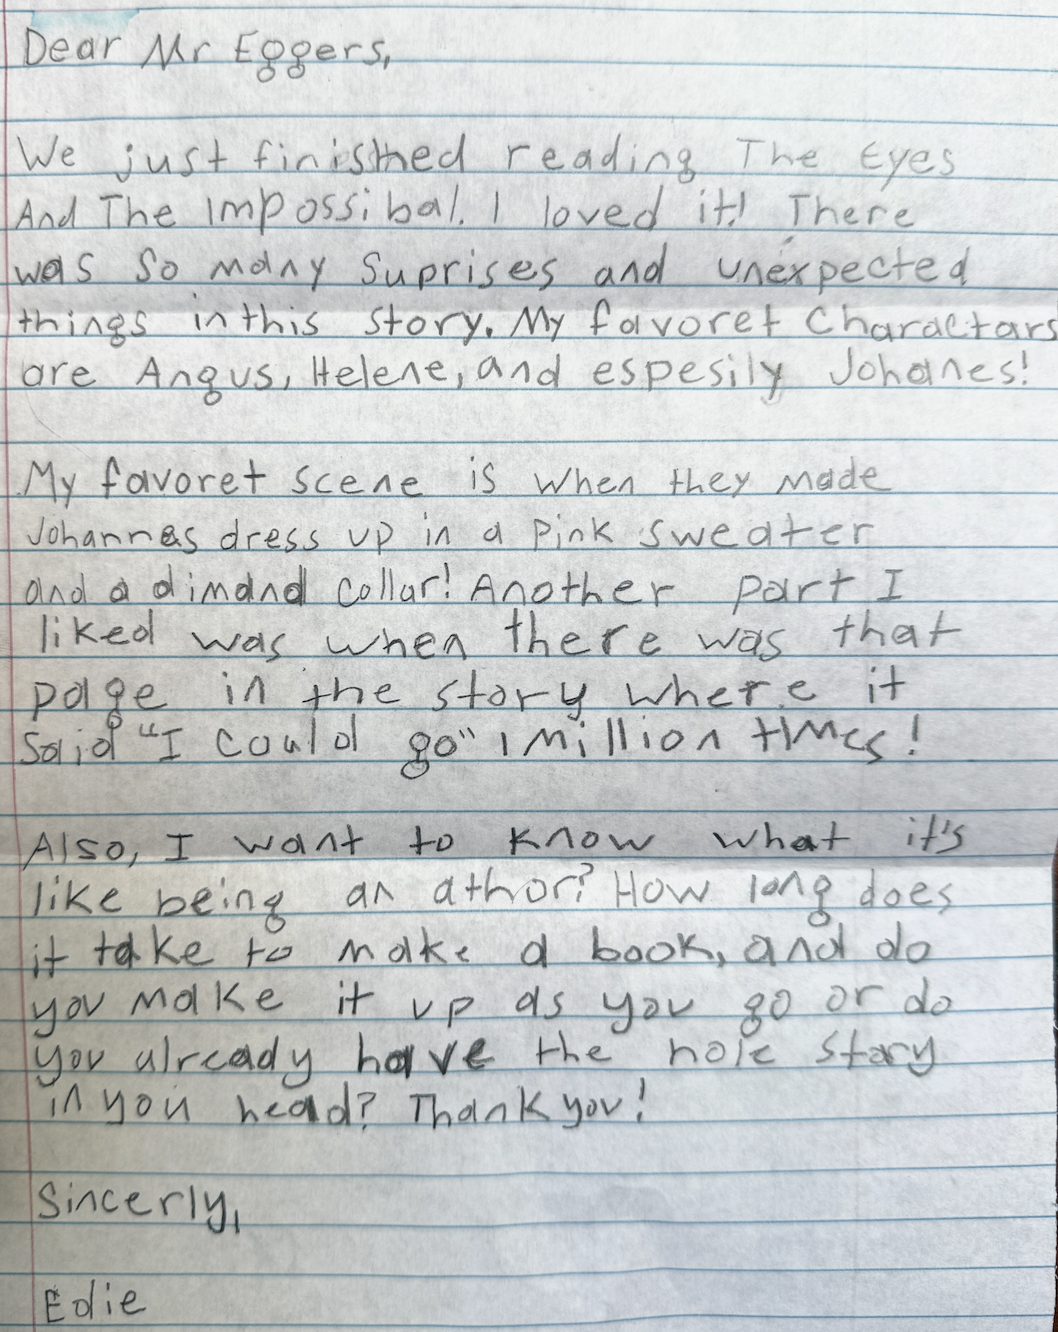 Dear Mr Eggers,
We just finished reading The Eyes
And The Impossibal. I loved it! There
was so many suprises and unexpected
things in this story. My favoret Charactars
are Angus, Helene, and espesily Johanes!
My favoret scene is when they made
Johannes dress up in a pink sweater
and a dimand collar! Another part I
liked was when there was that
page in the story where it
said "I could go" 1 million times!
Also, I want to know what it's
like being an athor? How long does
it take to make a book, and do
you make it up as you go or do
you already have the hole story
in you head? Thank you!
Sincerly,
Edie